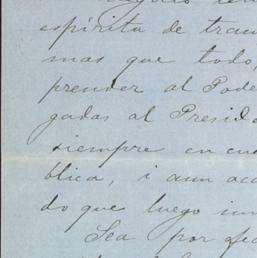 espíritu de tran
mas que todo,
prender al Pode
gadas al Presid
siempre en cu
blica, i aun ac
do que luego
Sea por